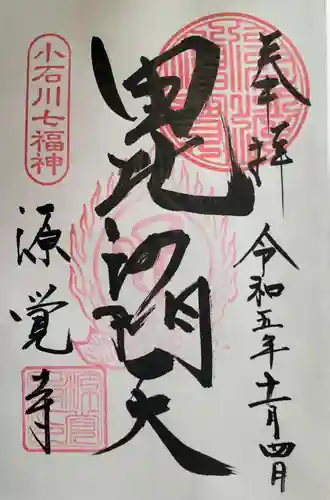 奉拝
令和五年十一月四日
毘沙門天
小石川七福神
源覚寺